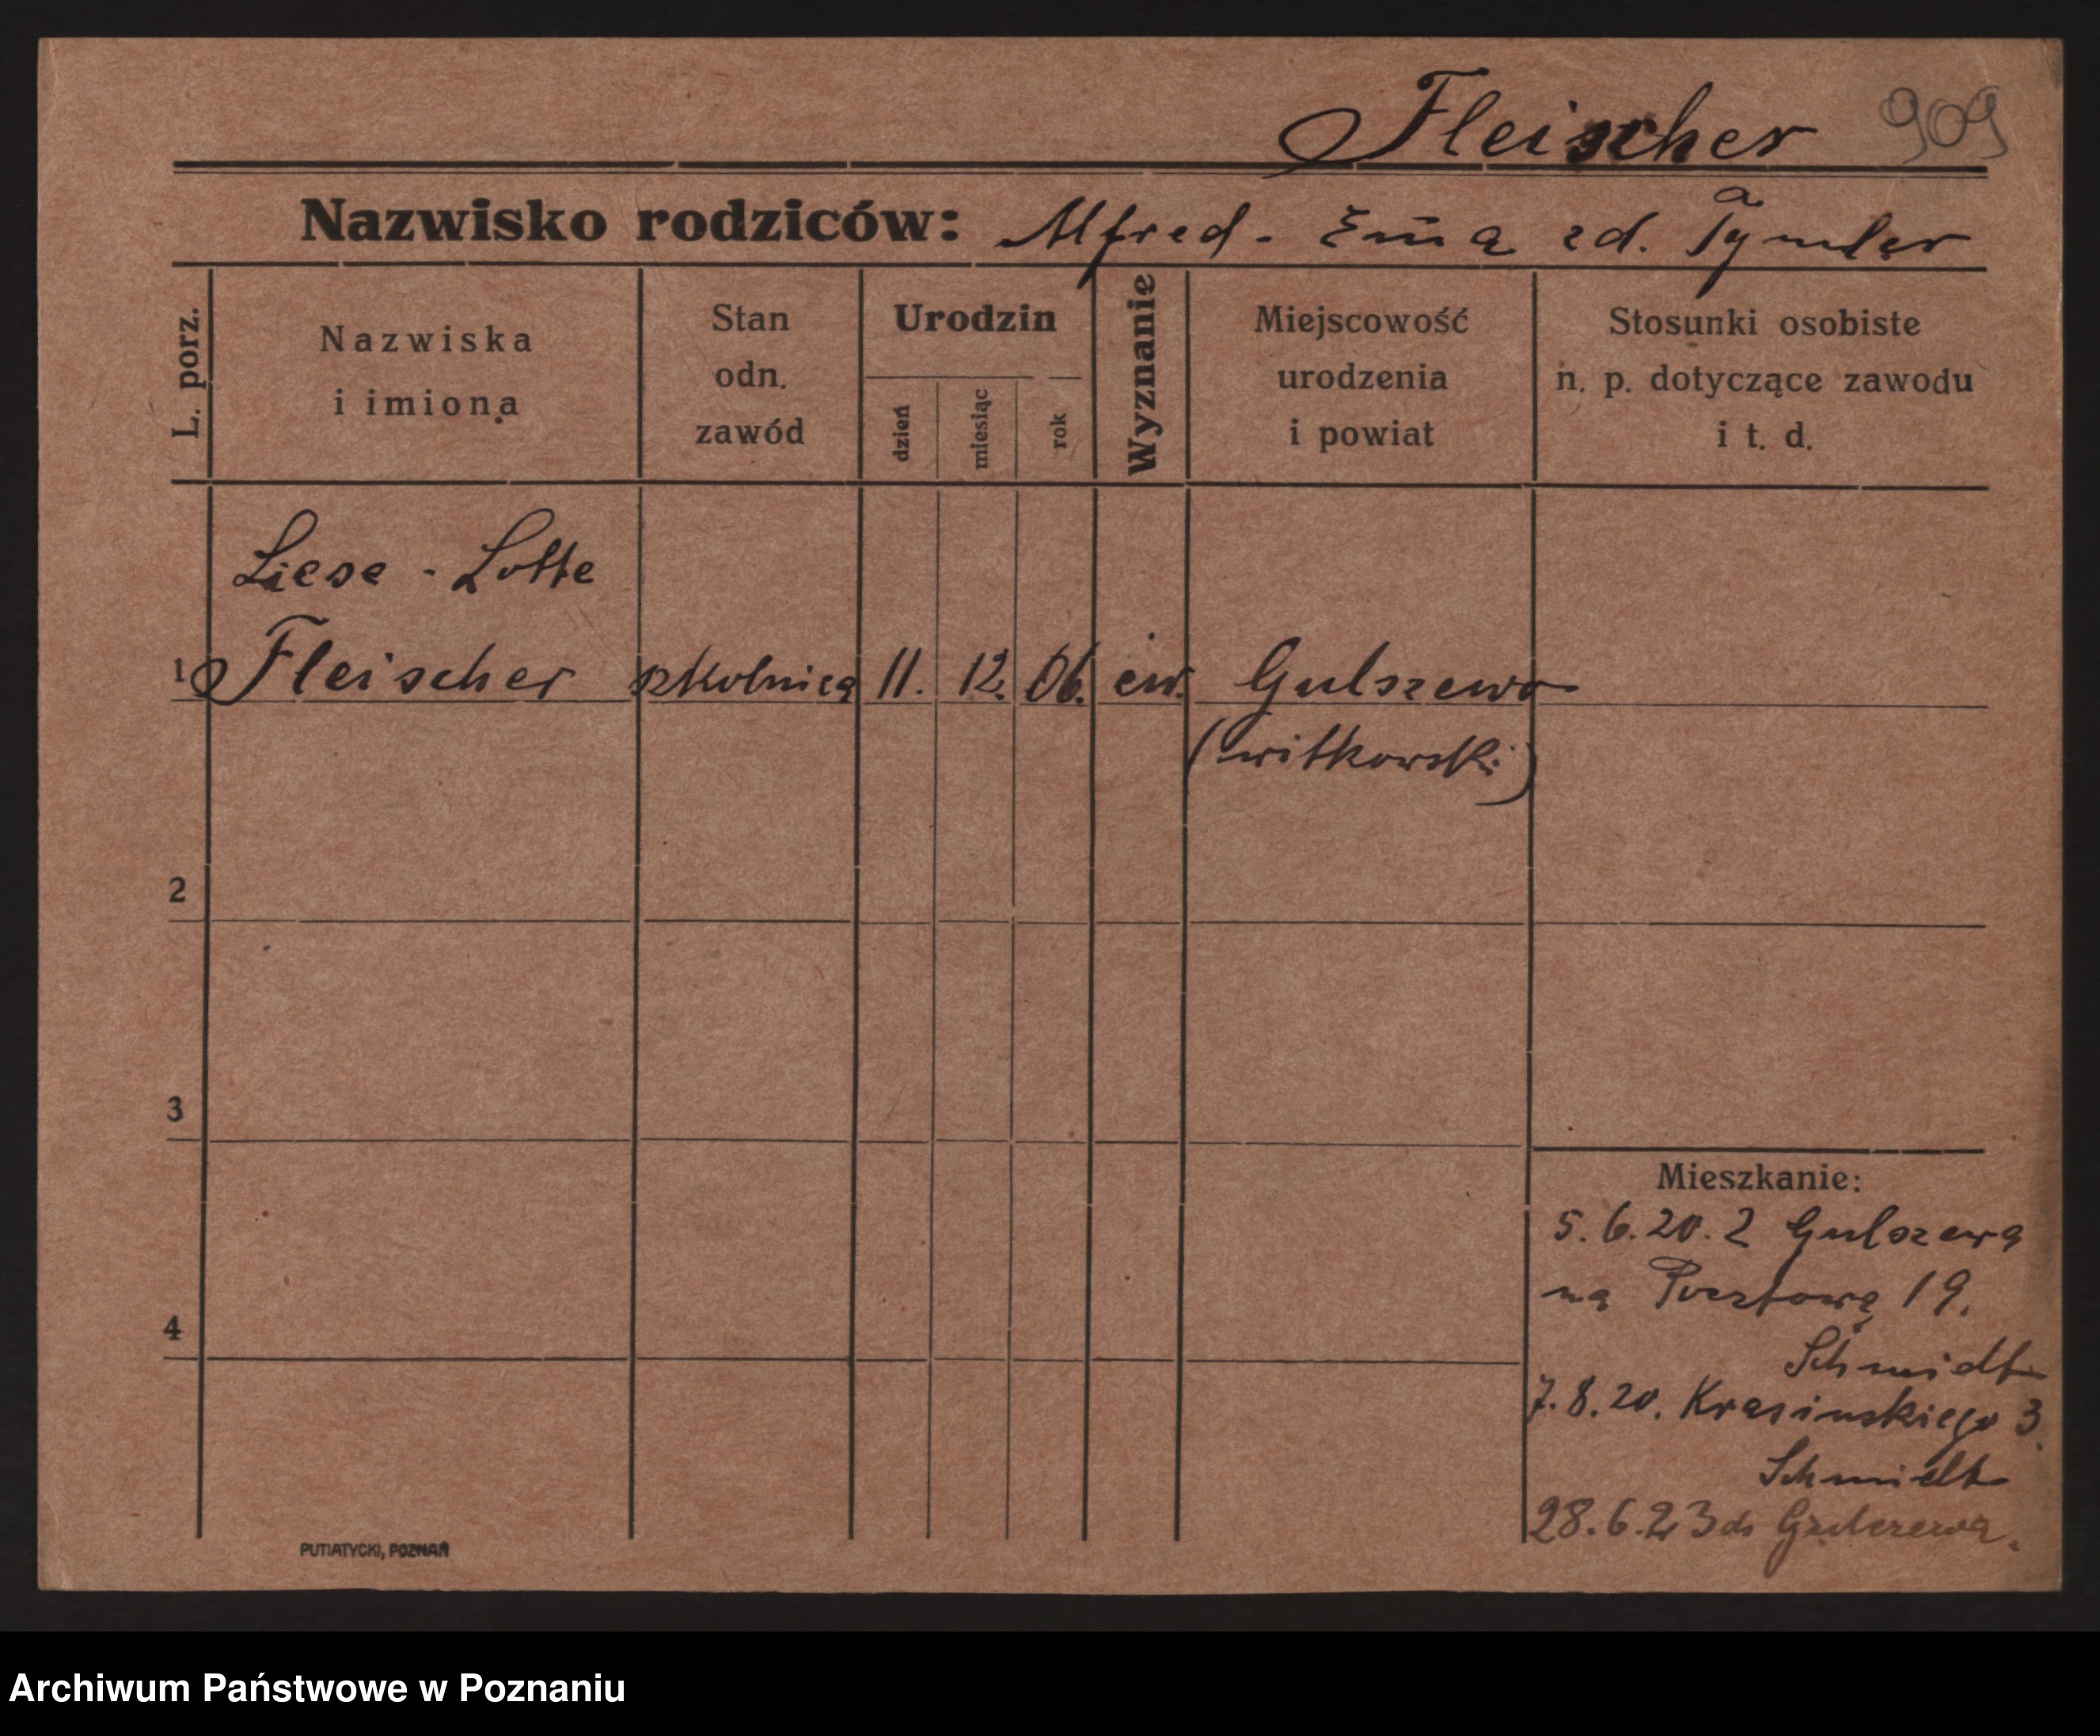 Fleischer 909
Nazwisko rodziców: Alfred - Em̅a zd. Tymler
L. porz.
Nazwiska
i imiona
Stan
odn.
zawód
Urodzin
dzień
miesiąc
rok
Wyznanie
Miejscowość
urodzenia
i powiat
Stosunki osobiste
n. p. dotyczące zawodu
i t. d.
Liese - Lotte
1 Fleischer szkolnica 11. 12. 06. ew. Gulszewo
(witkowski)
2
3
4
Mieszkanie:
5.6.20. z Gulszewa
na Pocztową 19.
Schmidt
7.8.20. Krasinskiego 3.
Schmidt
28.6.23 do Gulczewa.
PUTIATYCKI, POZNAŃ
Archiwum Państwowe w Poznaniu